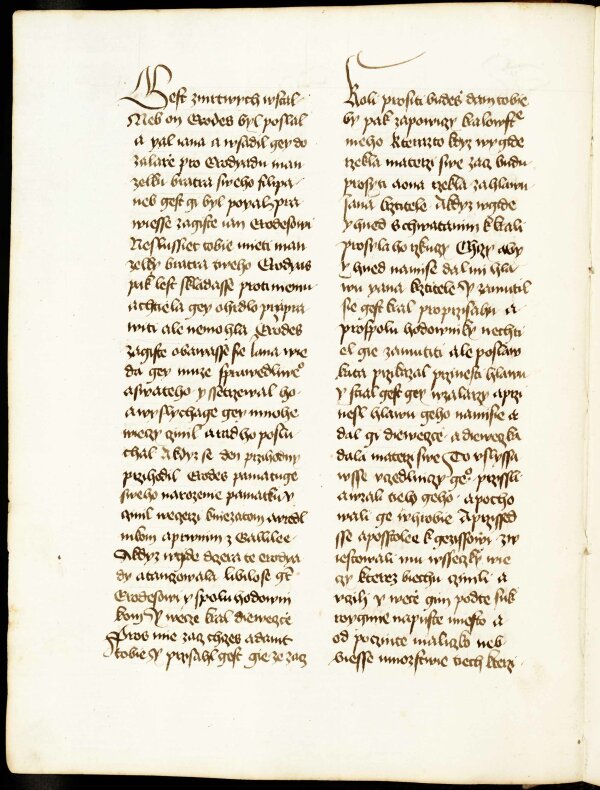 Gest zmrtwych wstal
Neb on Erodes byl poslal
a yal iana a wsadil gey do
zalarze pro Erodyadu man
zelku bratra sweho filipa
neb gest gi byl poyal Pra
wiesse zagiste ian Erodesowi
Neslussiet tobie mieti man
zelky bratra tweho Erodyas
pak lest skladasse proti niemu
a chtiela gey o hrdlo przipra
witi ale nemohla Erodes
zagiste obawasse sie iana wie
da gey muze sprawedlive°
a swateho y ssetrzewal ho
a wyslychage gey mnohe
wieczy czinil a rad ho poslu
chal A kdyz se den przihodny
przihodil Erodes pamatuge
sweho narozenie pamatku y
czinil weczerzi kniezatom a rzedl
nikom a prwnim z Gallilee
A kdyz wgide dczera te erodya
dy a tanczowala libilo se gt
Erodesowi y spolu hodowni
kom Y wecze kral diewczcie
Pros mne zacz chczes a damt
tobie Y przisahl gest gie ze zacz
Koli prositi budes dam tobie
by pak za polowiczy kralowst°
meho Kterazto kdyz wygide
rzekla materzi swe zacz budu
prosyti a ona rzekla za hlawu
Jana krztitele A kdyz wgide
y hned s chwatanim k krali
prosyla ho rzkuczy Chczy aby
y hned na misse dal mi hla
wu yana krztitele Y zamutil
sie gest kral pro przisahu a
pro spolu hodowniky nechti
el gie zamutiti ale poslaw
kata przikazal prinesti hlawu
y stial gest gey w zalarzy a przi
nesl hlawu geho na misie a
dal gi diewczcie a diewczka
dala materzi swe To vslyssa
wsse vczedlniczy ge° przissli
a wzali tielo geho a pocho
wali ge w hrobie A przissed
sse apostolee k gezissowi zw
iestowali mu wsseczky wie
czy kterez biechu czinili a
vczili y wece gim podte suk
romymie na puste miesto a
od poczinte maliczko neb
biesse mnozstwie tiech kterz